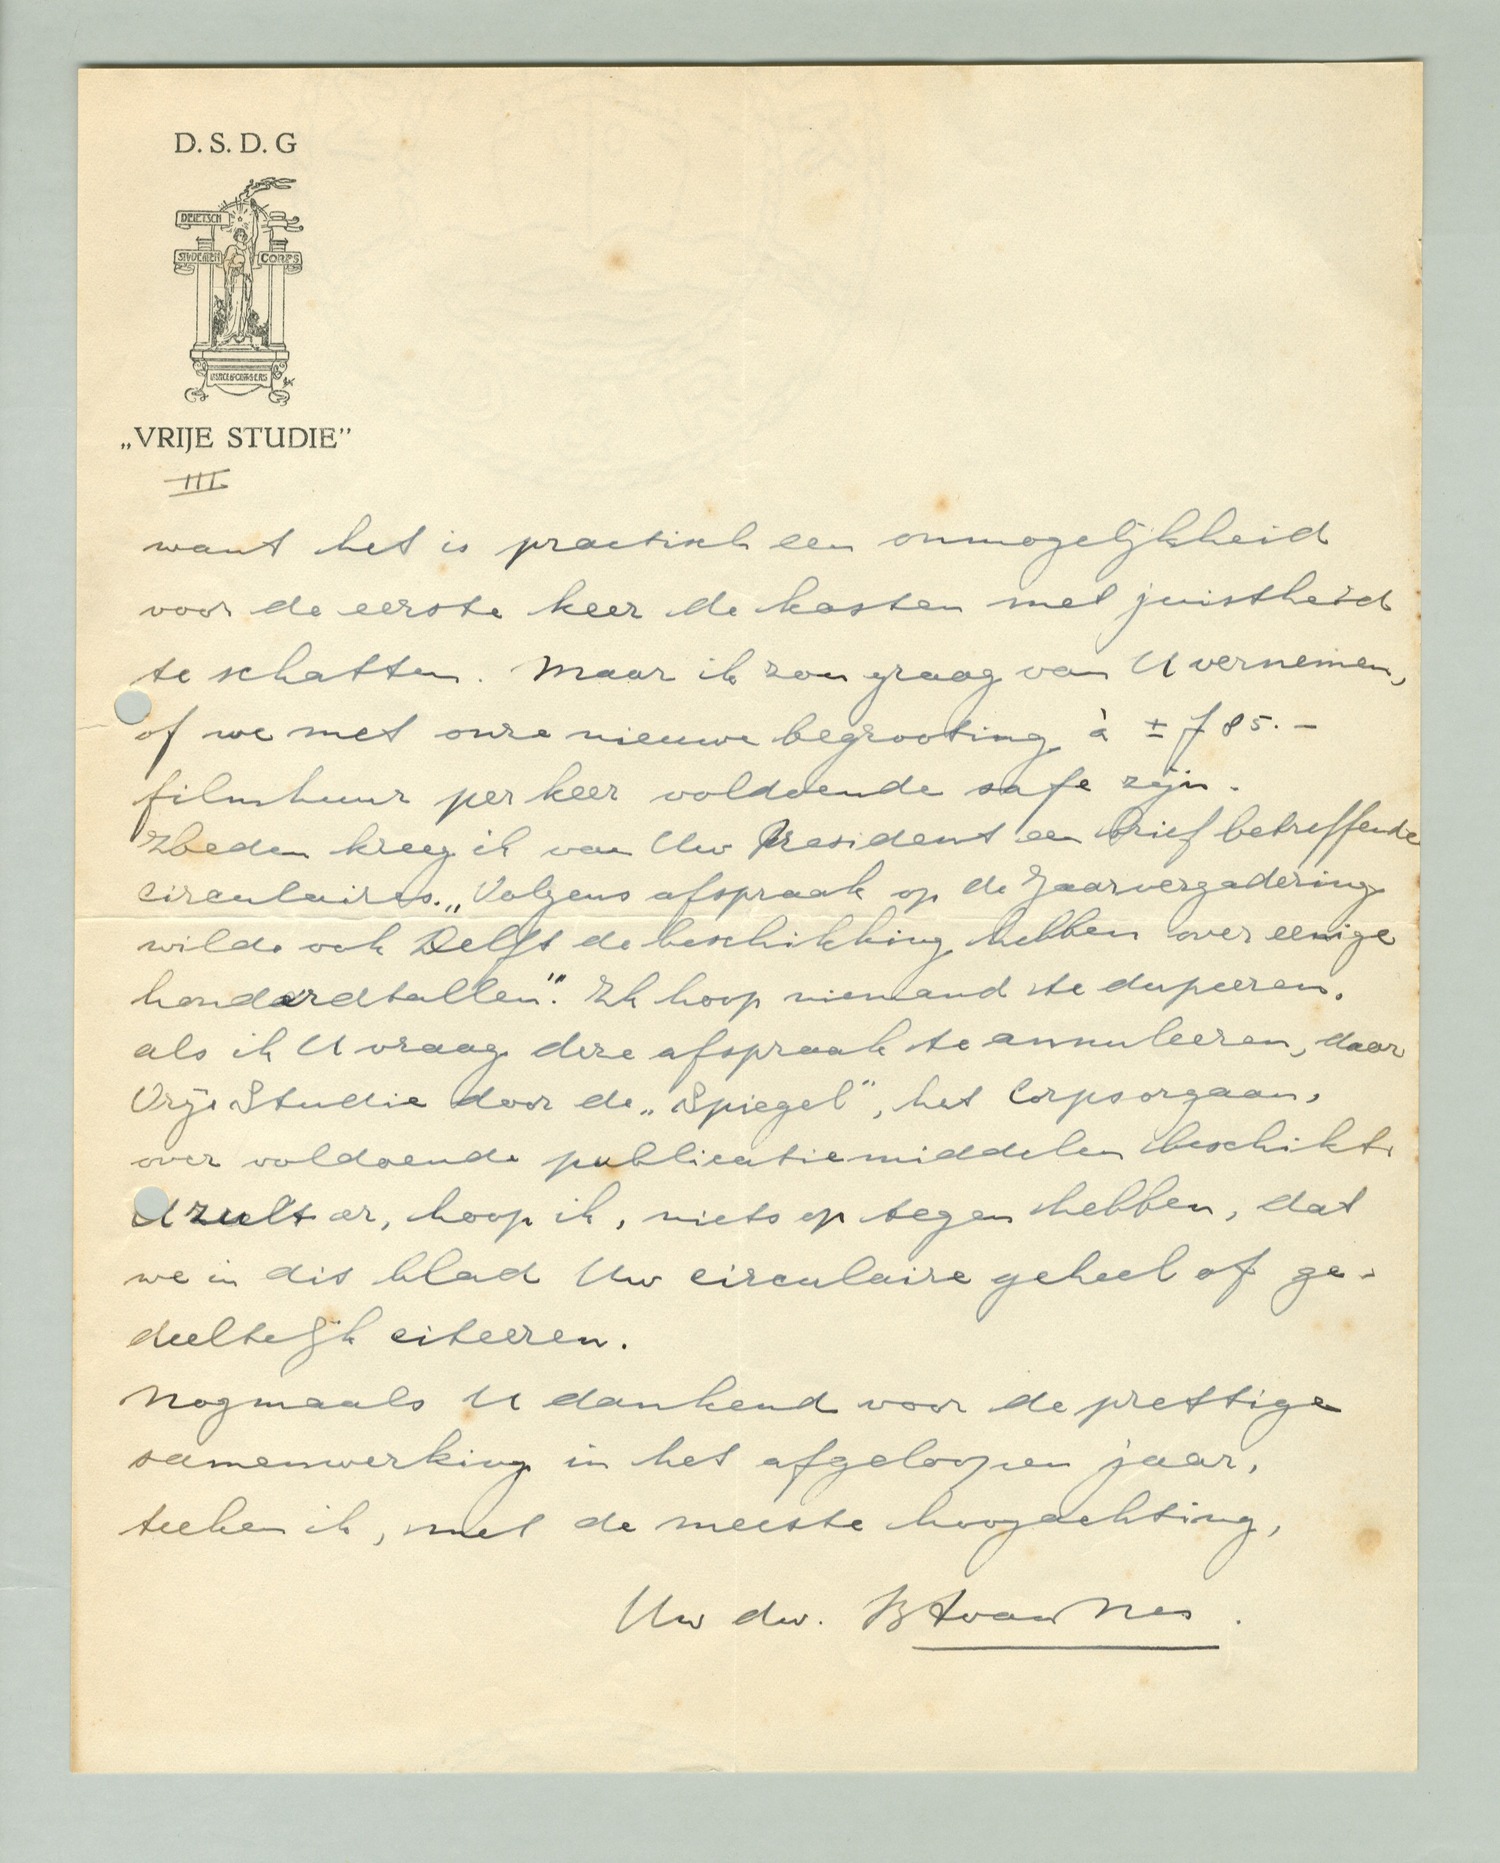 D. S. D. G
DELFTSCH
STUDENTEN CORPS
„VRIJE STUDIE”
III
want het is practisch een onmogelijkheid
voor de eerste keer de kosten met juistheid
te schatten. Maar ik zou graag van U vernemen,
of we met onze nieuwe begrooting à ± f 85.-
filmhuur per keer voldoende safe zijn.
Heden kreeg ik van Uw President een brief betreffende
circulaires. „Volgens afspraak op de Jaarvergadering
wilde ook Delft de beschikking hebben over eenige
honderdtallen”. Ik hoop niemand te dupeeren,
als ik U vraag deze afspraak te annuleeren, daar
Vrije Studie door de „Spiegel”, het Corpsorgaan,
over voldoende publicatiemiddelen beschikt.
U zult er, hoop ik, niets op tegen hebben, dat
we in dit blad Uw circulaire geheel of ge-
deeltelijk citeeren.
Nogmaals U dankend voor de prettige
samenwerking in het afgeloopen jaar,
teeken ik, met de meeste hoogachting,
Uw dw. B A van Nes.